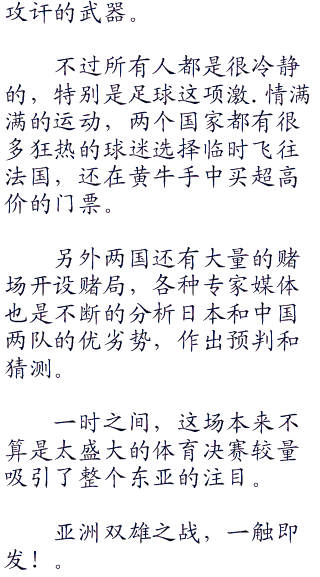 攻讦的武器。
不过所有人都是很冷静
的，特别是足球这项激.情满
满的运动，两个国家都有很
多狂热的球迷选择临时飞往
法国，还在黄牛手中买超高
价的门票。
另外两国还有大量的赌
场开设赌局，各种专家媒体
也是不断的分析日本和中国
两队的优劣势，作出预判和
猜测。
一时之间，这场本来不
算是太盛大的体育决赛较量
吸引了整个东亚的注目。
亚洲双雄之战，一触即
发！。